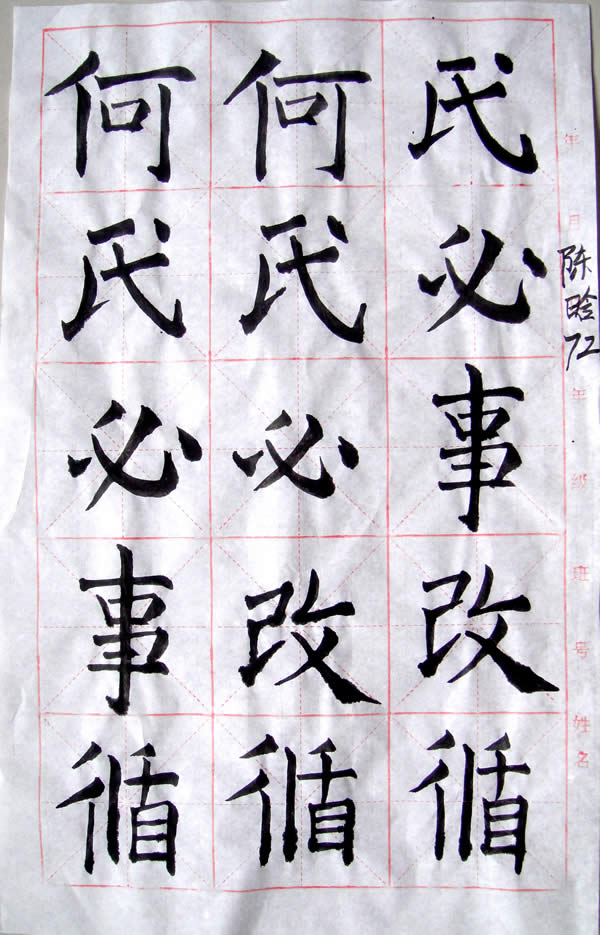 年月
年级班号姓名
陈晗72
氏必事改循
何氏必改循
何氏必事循